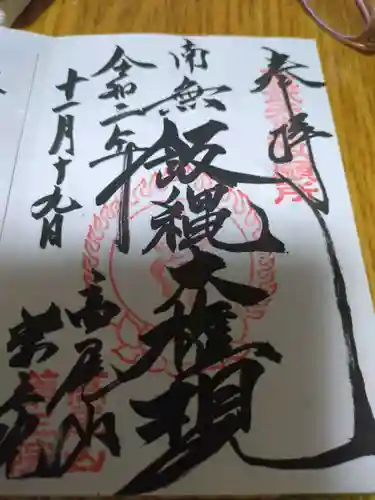 奉拝
南無
飯縄大権現
令和二年
十一月十九日
高尾山